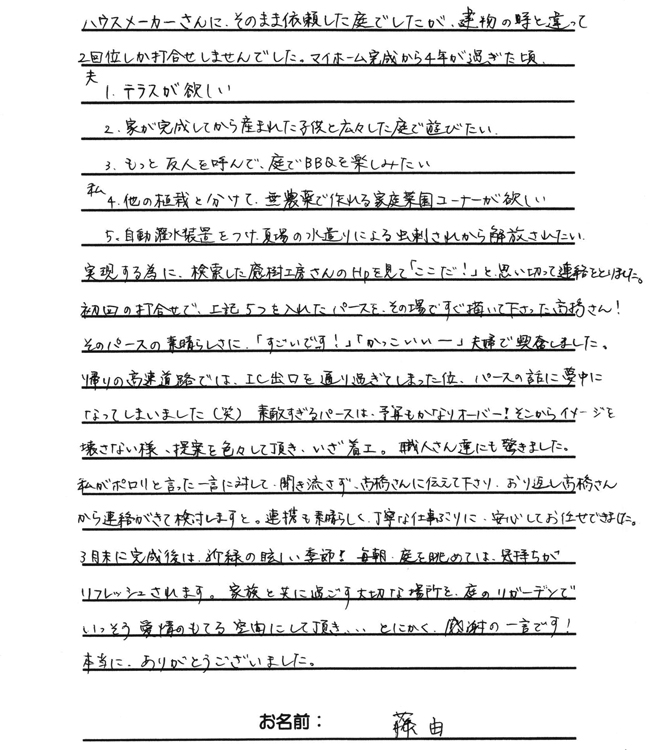 ハウスメーカーさんに、そのまま依頼した庭でしたが、建物の時と違って
2回位しか打合せしませんでした。マイホーム完成から4年が過ぎた頃、
夫 1. テラスが欲しい
2. 家が完成してから産まれた子供と広々した庭で遊びたい。
3. もっと友人を呼んで、庭でBBQを楽しみたい
私 4. 他の植栽と分けて、無農薬で作れる家庭菜園コーナーが欲しい
5. 自動灌水装置をつけ、夏場の水遣りによる虫刺されから解放されたい。
実現する為に、検索した庭樹工房さんのHpを見て「ここだ!」と、思い切って連絡をとりました。
初回の打合せで、上記5つを入れたパースを、その場ですぐ描いて下さった高橋さん!
そのパースの素晴らしさに、「すごいです!」「かっこいいー」夫婦で興奮しました。
帰りの高速道路では、IC出口を通り過ぎてしまった位、パースの話に夢中に
なってしまいました(笑) 素敵すぎるパースは、予算もかなりオーバー!そこからイメージを
壊さない様、提案を色々して頂き、いざ着工。職人さん達にも驚きました。
私がポロリと言った一言に対して、聞き流さず、高橋さんに伝えて下さり、おり返し高橋さん
から連絡がきて検討しますと。連携も素晴らしく、丁寧な仕事ぶりに、安心してお任せできました。
3月末に完成後は、新緑の眩しい季節!毎朝、庭を眺めては、気持ちが
リフレッシュされます。家族と共に過ごす大切な場所を、庭のリガーデンで
いっそう愛情のもてる空間にして頂き、、、とにかく、感謝の一言です!
本当に、ありがとうございました。
お名前: 藤由